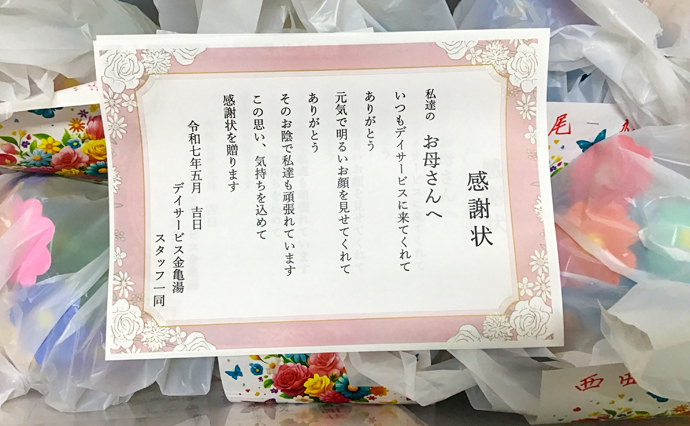 感謝状
私達の お母さんへ
いつもデイサービスに来てくれて
ありがとう
元気で明るいお顔を見せてくれて
ありがとう
そのお陰で私達も頑張れています
この思い、気持ちを込めて
感謝状を贈ります
令和七年五月 吉日
デイサービス金亀湯
スタッフ一同
尾一
西田